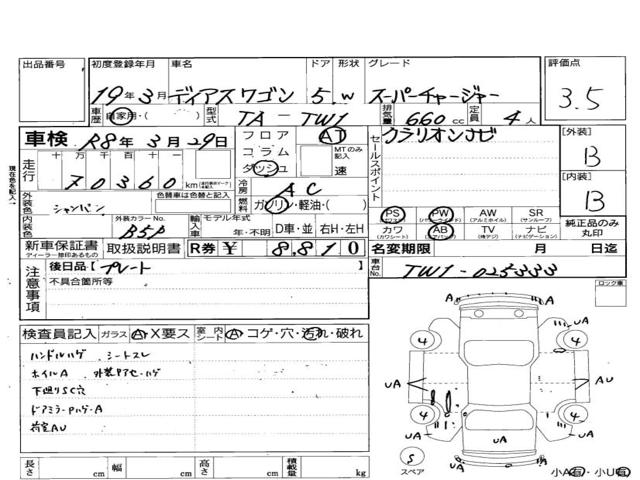 出品番号 初度登録年月 車名 ドア 形状 グレード 評価点
19年3月 ディアスワゴン 5.W スーパーチャージャー 3.5
車歴 自家用・( ) 型式 TA-TW1 排気量 660cc 定員 4人
車検 R8年3月29日 フロア AT クラリオンナビ [外装]
コラム MTのみ記入 B
走行 十万千百十一 ダッシュ 速 セールスポイント
70360km 冷房 AC [内装]
外装色 シャンパン 色替車は色替と記入 燃料 ガソリン・軽油・( ) PS PW AW SR B
内装色 外装カラーNo. B5P 輸入車 モデル年式 年・不明 D車・並 右H・左H カワ AB TV ナビ 純正品のみ丸印
新車保証書 取扱説明書 R券 ¥ 8,810 名変期限 月 日迄
ディーラー捺印あるもの
注意事項 後日品[プレート ] 車台No. TW1-025333
不具合箇所等 ロック車
検査員記入 ガラス A X要ス 室内シート A コゲ・穴・汚れ・破れ
ハンドルハゲ シートスレ
ホイルA
下廻りSC穴
ドアミラーPハゲ-A
荷室AU
A A A
UA UA
4 4
UA AU
4 4
UA UA UA
S スペア
長さ cm 幅 cm 高さ cm 積載量 kg 小A有・小U有
現在色を記入